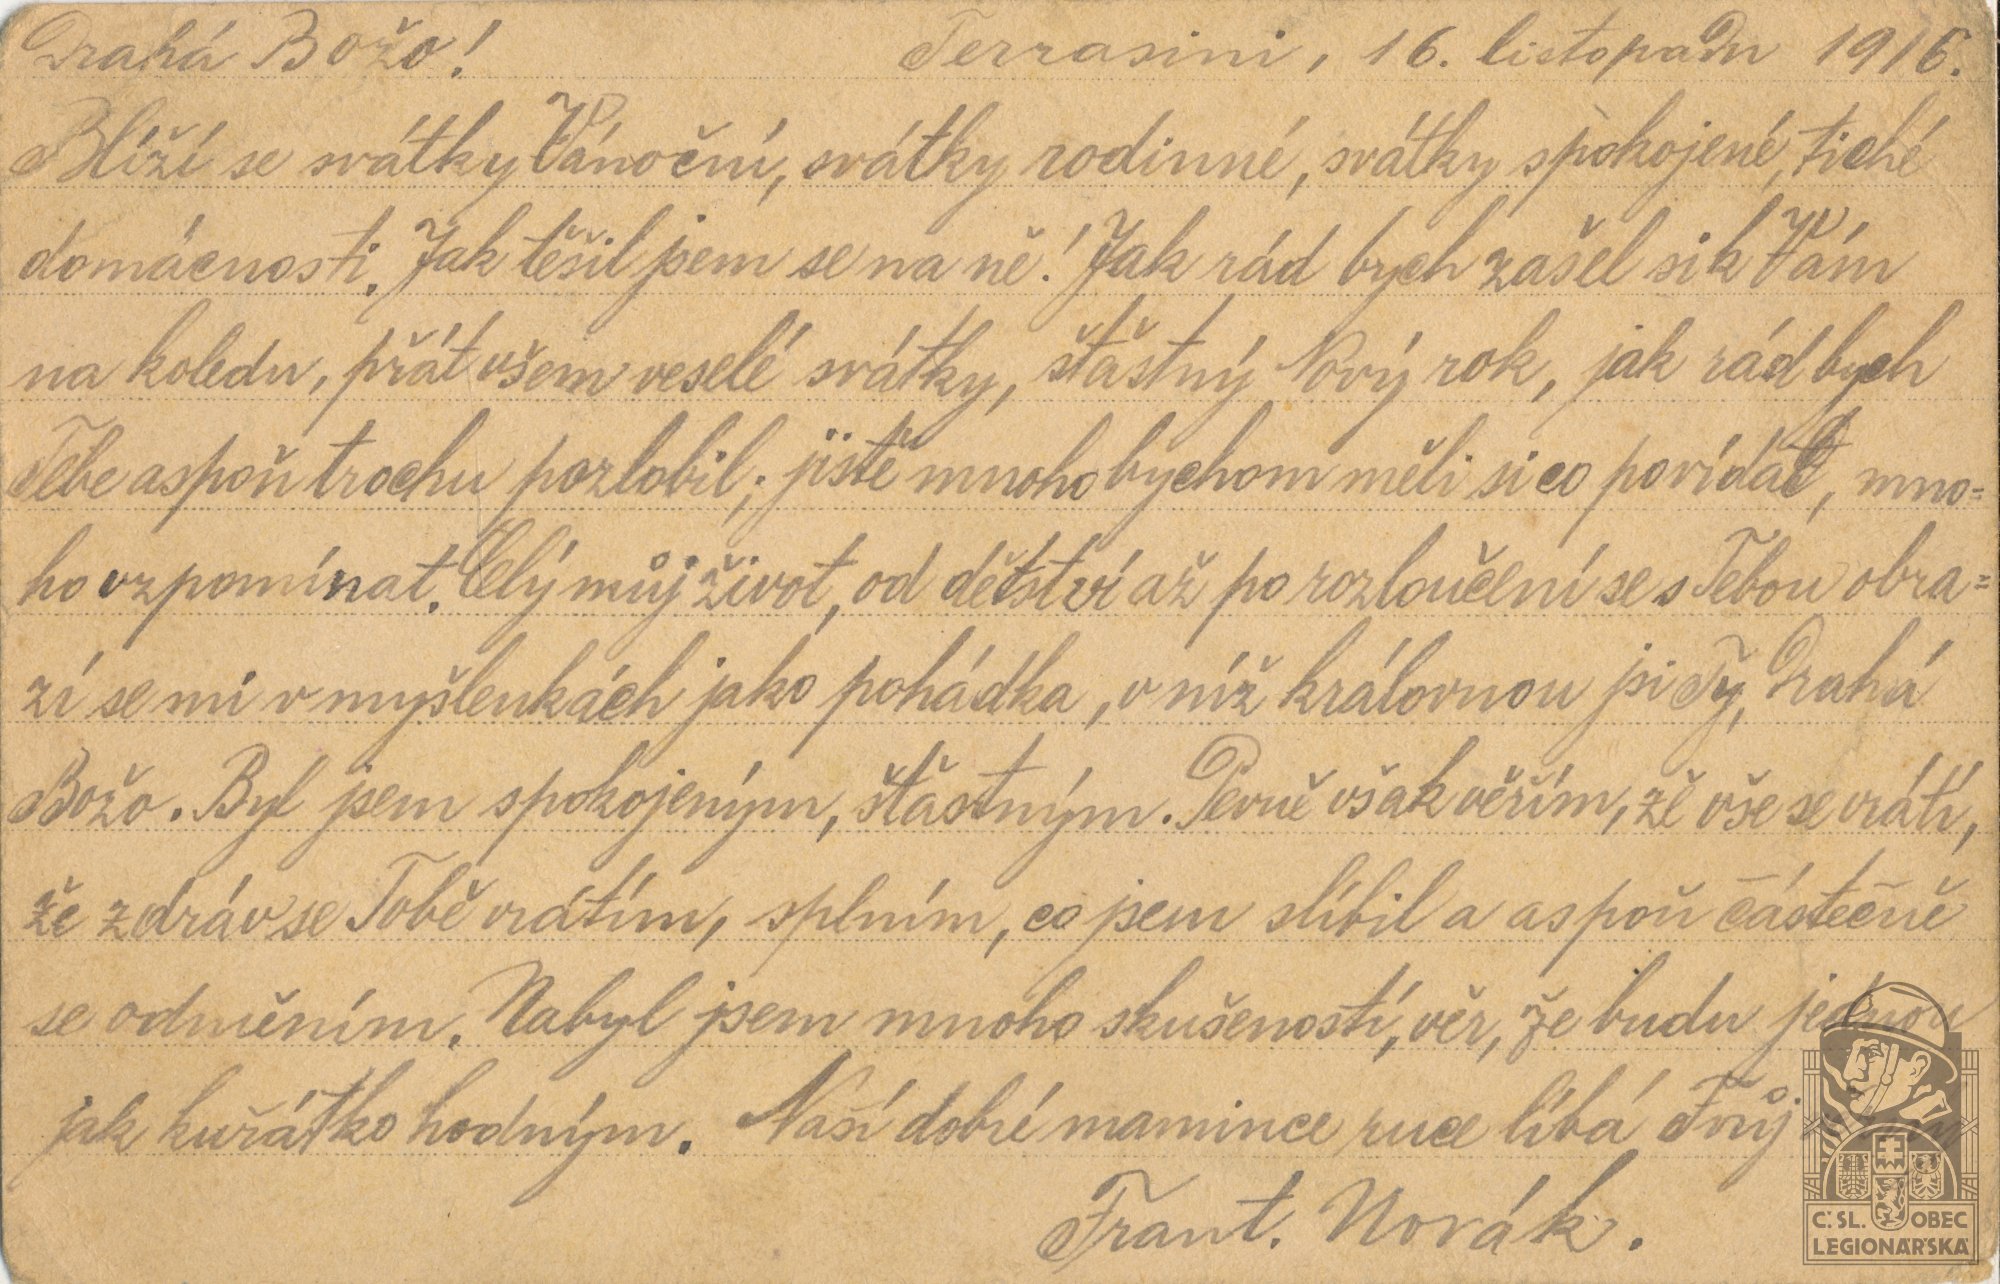 Drahá Božo! Terrasini, 16. listopadu 1916.
Blíží se svátky Vánoční, svátky rodinné, svátky spokojené, tiché
domácnosti. Jak těšil jsem se na ně! Jak rád bych zašel si k Vám
na koledu, přát všem veselé svátky, šťastný Nový rok, jak rád bych
Tebe aspoň trochu pozlobil; jistě mnoho bychom měli si co povídat, mno=
ho vzpomínat. Celý můj život, od dětství až po rozloučení se s Tebou obra=
zí se mi v myšlenkách jako pohádka, v níž královnou jsi Ty, Drahá
Božo. Byl jsem spokojeným, šťastným. Pevně však věřím, že vše se vrátí,
že zdráv se Tobě vrátím, splním, co jsem slíbil a aspoň částečně
se odměním. Nabyl jsem mnoho skušeností, věř, že budu jednou
jak kuřátko hodným. Naší dobré mamince ruce líbá Tvůj
Frant. Novák.
Č. SL. OBEC
LEGIONÁŘSKÁ